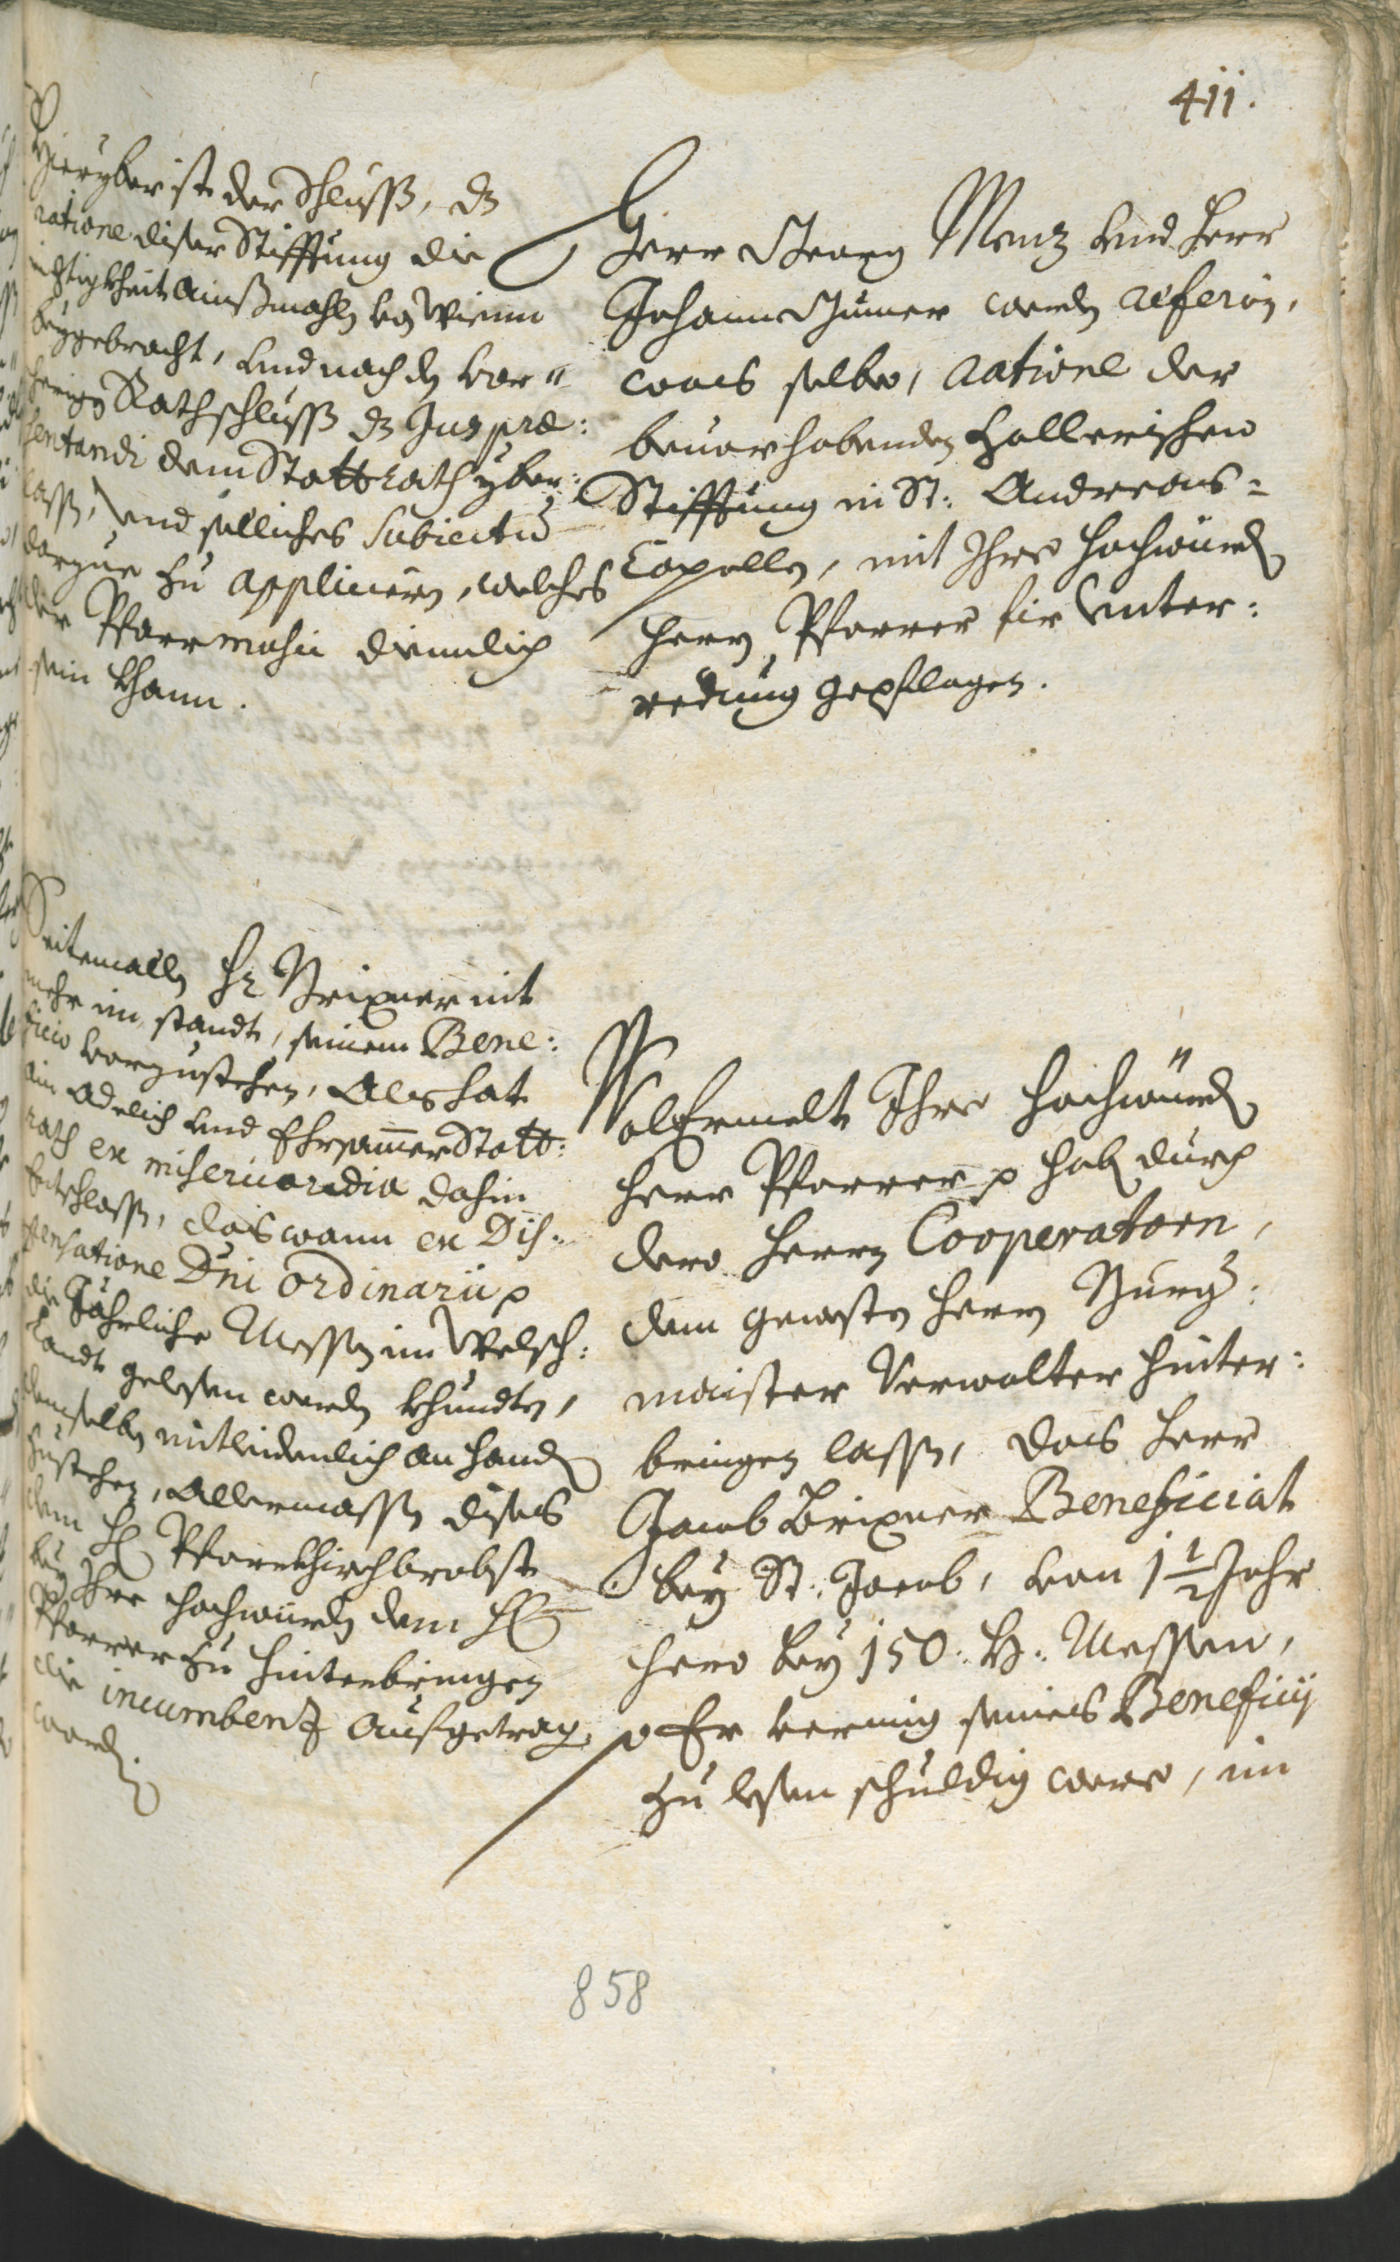 411.
Hieryber ist der Schluss, dz
ratione diser Stifftung die
richtigkheit ainssmahls von Wienn
beygebracht, vnd nach dem vor"
herigen Rathschluss dz Jus præ:
sentandi dem Stattrath yber:
lassen, vnd solliches Subiectum
darzue zu appliciern, welches
der Pfarrmusic diennlich
sein khann.
Herr Georg Menz vnd Herr
Johann Gumer werden referirn,
was selbe, ratione der
beuorhabenden Hallerischen
Stifftung in St: Andreas=
Capellen, mit Ihro Hochwürden
Herrn Pfarrer für Vnter:
redung gepflogen.
Seitemallen Hr Brixner nit
mehr im standt, seinem Bene:
ficio vorzustehen, Als hat
ain Adelich vnd Ehrsammer Statt:
rath ex misericordia dahin
entschlossen, das wann ex Dis:
pensatione Dni ordinarii p
die Jährliche Messen im Welsch:
Landt gelesen werden khundten,
demselben mitleidenlich an Handt
zustehen, Allermassen dises
dem H Pfarrkhirchbrobst
bey Ihro Hochwürden dem H
Pfarrer zu hinterbringen
die incumbenz aufgetragen
worden.
Wolermelt Ihro Hochwürden
Herr Pfarrer p hab durch
dero Herrn Cooperatorn,
dem gewesten Herrn Burg:
maister Verwalter hinter:
bringen lassen, das Herr
Jacob Brixner Beneficiat
bey St: Jacob, von 1 1/2 Jahr
hero bey 150. H: Messen,
so Er vermig seines Beneficij
zu lesen schuldig were, im
858